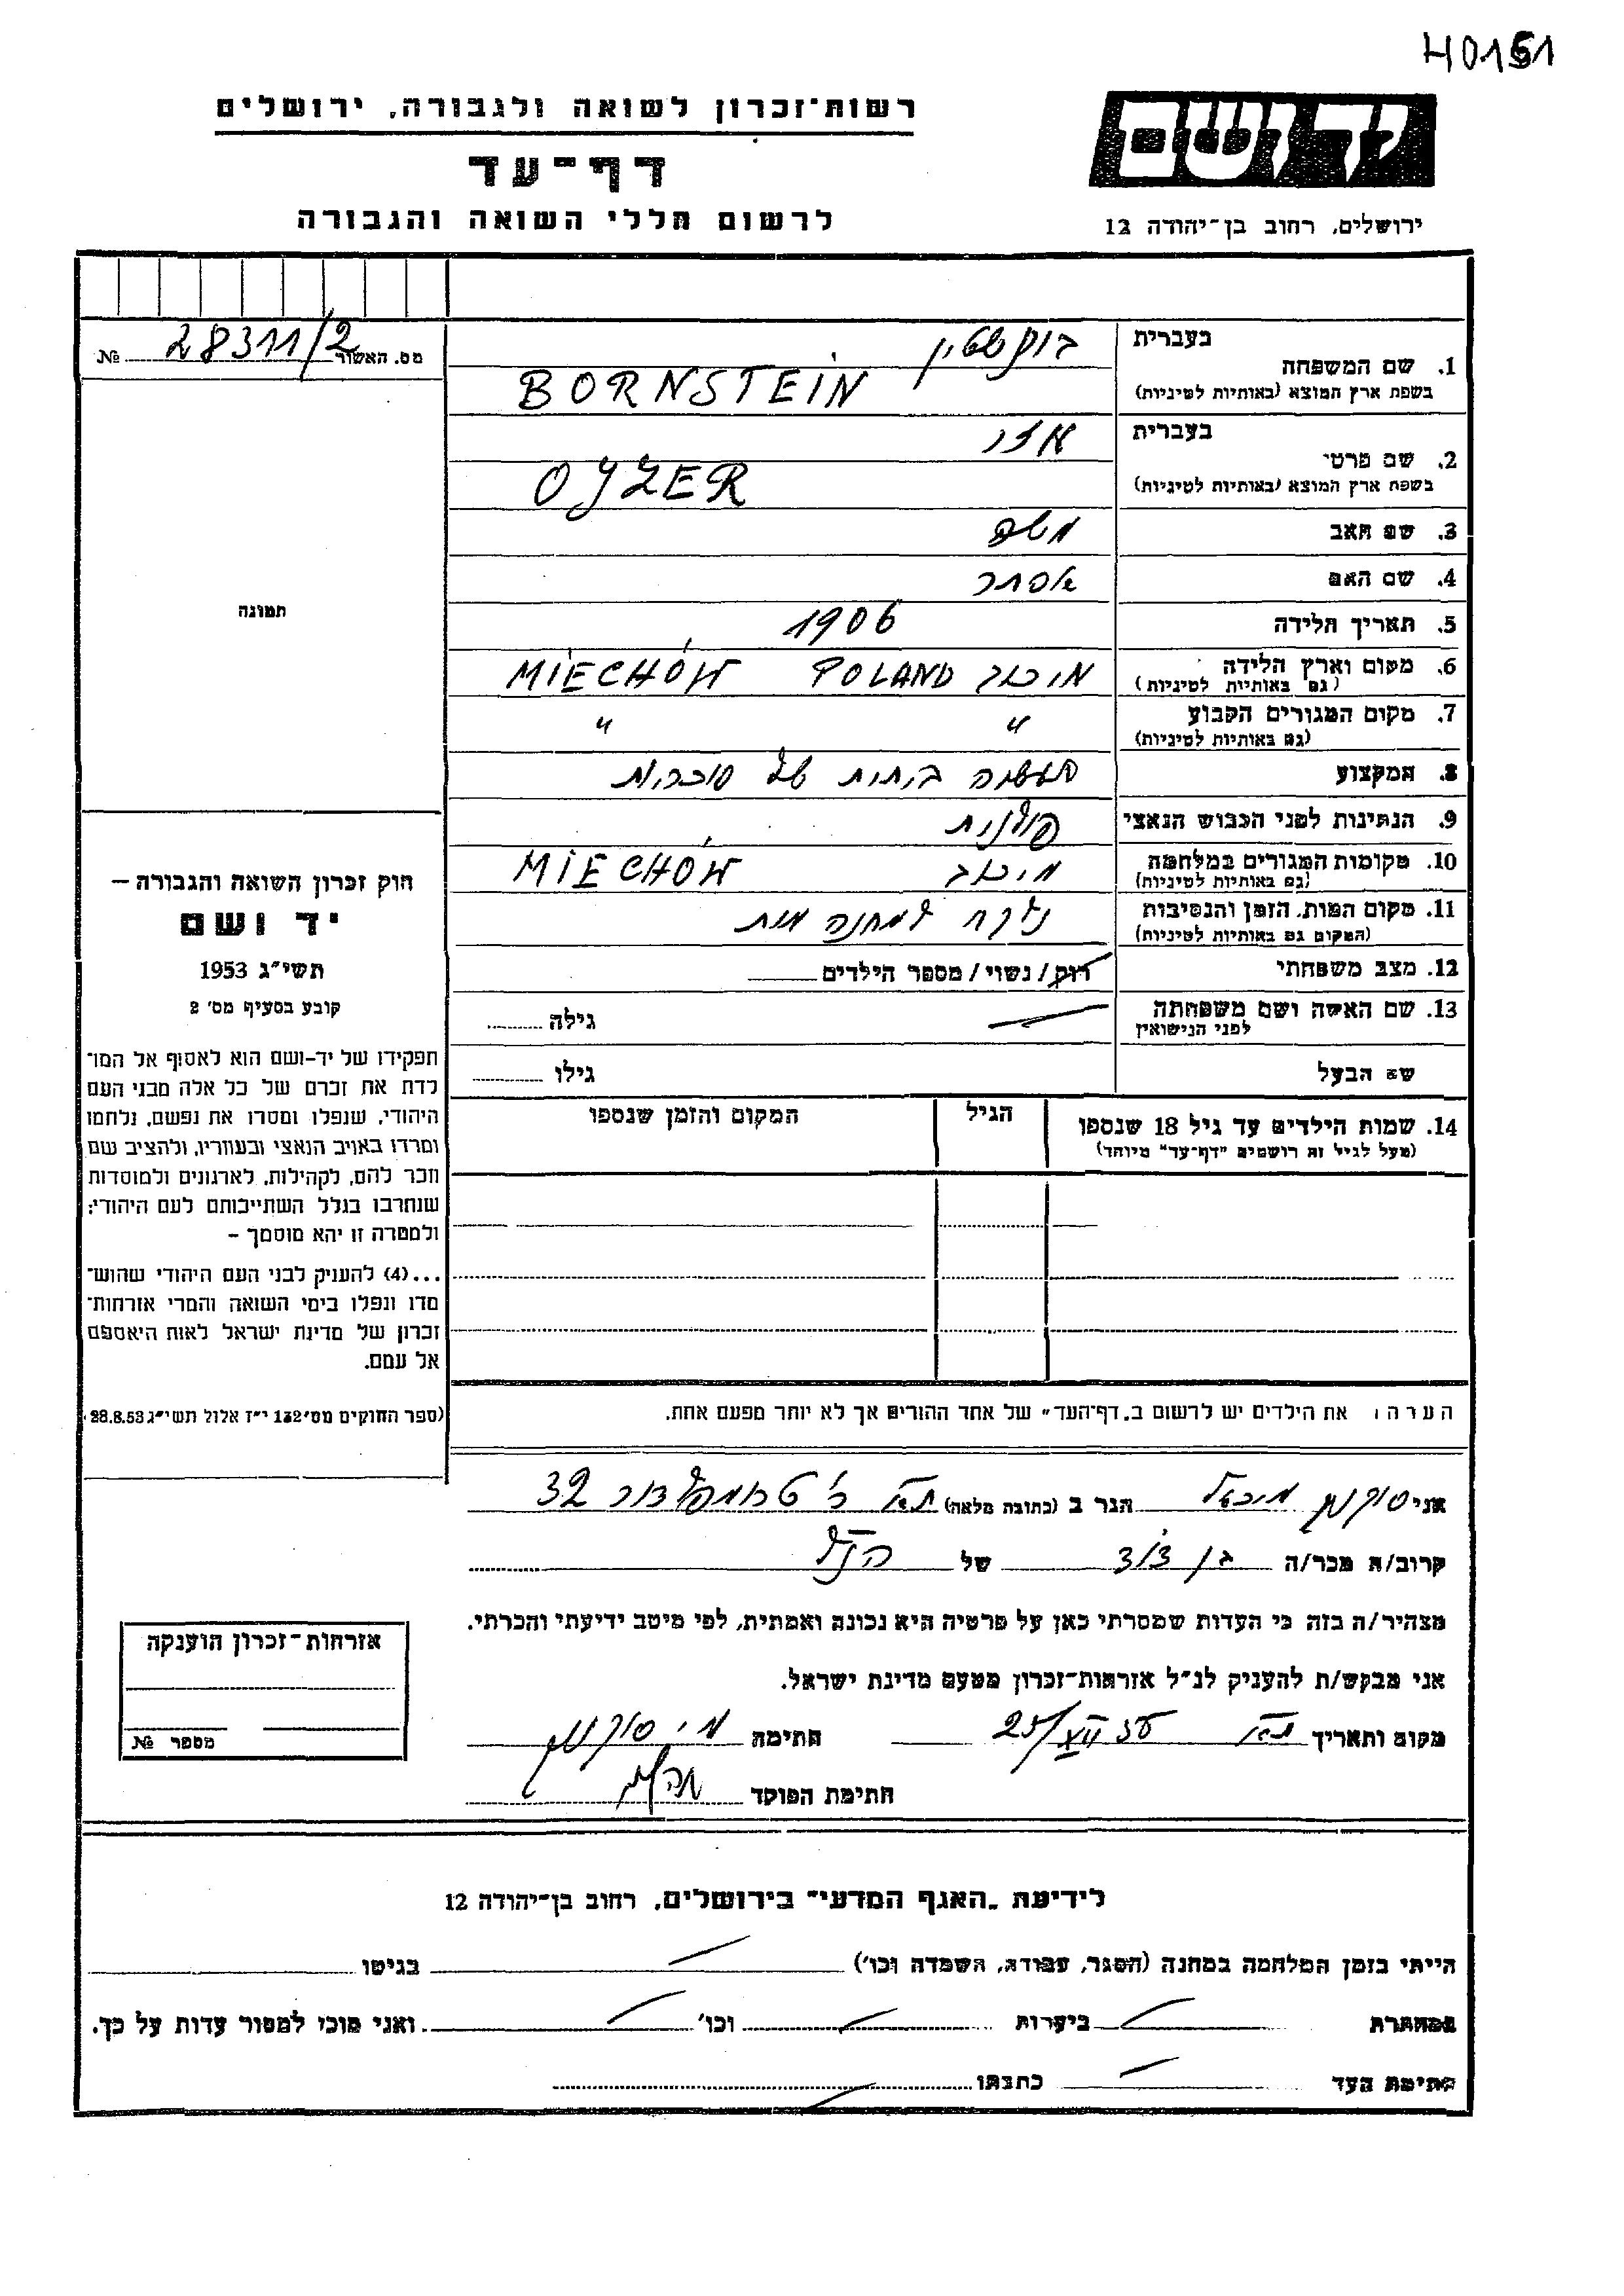 H01551
רשות־זכרון לשואה ולגבורה, ירושלים
יד ושם
דף־עד
לרשום חללי השואה והגבורה
ירושלים, רחוב בן־יהודה 12
מס. האשור 28311/2 №
תמונה
חוק זכרון השואה והגבורה —
יד ושם
תשי״ג 1953
קובע בסעיף מס׳ 2
תפקידו של יד-ושם הוא לאסוף אל המו־
לדת את זכרם של כל אלה מבני העם
היהודי, שנפלו ומסרו את נפשם, נלחמו
ומרדו באויב הנאצי ובעוזריו, ולהציב שם
וזכר להם, לקהילות, לארגונים ולמוסדות
שנחרבו בגלל השתייכותם לעם היהודי;
ולמטרה זו יהא מוסמך —
...(4) להעניק לבני העם היהודי שהוש־
מדו ונפלו בימי השואה והמרי אזרחות־
זכרון של מדינת ישראל לאות היאספם
אל עמם.
(ספר החוקים מס׳ 132 י״ז אלול תשי״ג 28.8.53)
בעברית
1. שם המשפחה
בשפת ארץ המוצא (באותיות לטיניות) BORNSTEIN
בעברית
2. שם פרטי
בשפת ארץ המוצא (באותיות לטיניות) OJZER
3. שם האב משה
4. שם האם אסתר
5. תאריך הלידה 1906
6. מקום וארץ הלידה מיכוב POLAND MIECHÓW
(גם באותיות לטיניות)
7. מקום המגורים הקבוע " "
(גם באותיות לטיניות)
8. המקצוע תעשיה ביתית של סוכריות
9. הנתינות לפני הכבוש הנאצי פולנית
10. מקומות המגורים במלחמה מיכוב MIECHÓW
(גם באותיות לטיניות)
11. מקום המות, הזמן והנסיבות נלקח למחנה מות
(המקום גם באותיות לטיניות)
12. מצב משפחתי רוק/נשוי/מספר הילדים
13. שם האשה ושם משפחתה גילה
לפני הנישואין
שם הבעל גילו
14. שמות הילדים עד גיל 18 שנספו הגיל המקום והזמן שנספו
(מעל לגיל זה רושמים "דף־עד" מיוחד)
הערה: את הילדים יש לרשום ב„דף־העד" של אחד ההורים אך לא יותר מפעם אחת.
אני מיכאל הגר ב (כתובת מלאה) ת"א ר' טרומפלדור 32
קרוב/ה מכר/ה בן דוד של הנ"ל
מצהיר/ה בזה כי העדות שמסרתי כאן על פרטיה היא נכונה ואמתית, לפי מיטב ידיעתי והכרתי.
אני מבקש/ת להעניק לנ״ל אזרחות־זכרון מטעם מדינת ישראל.
מקום ותאריך ת"א חתימה
חתימת הפוקד
אזרחות־זכרון הוענקה
מספר №
לידיעת „האגף המדעי" בירושלים, רחוב בן־יהודה 12
הייתי בזמן המלחמה במחנה (הסגר, עבודה, השמדה וכו׳) בגיטו
במחתרת ביערות וכו׳ ואני מוכן למסור עדות על כך.
חתימת העד כתבתו